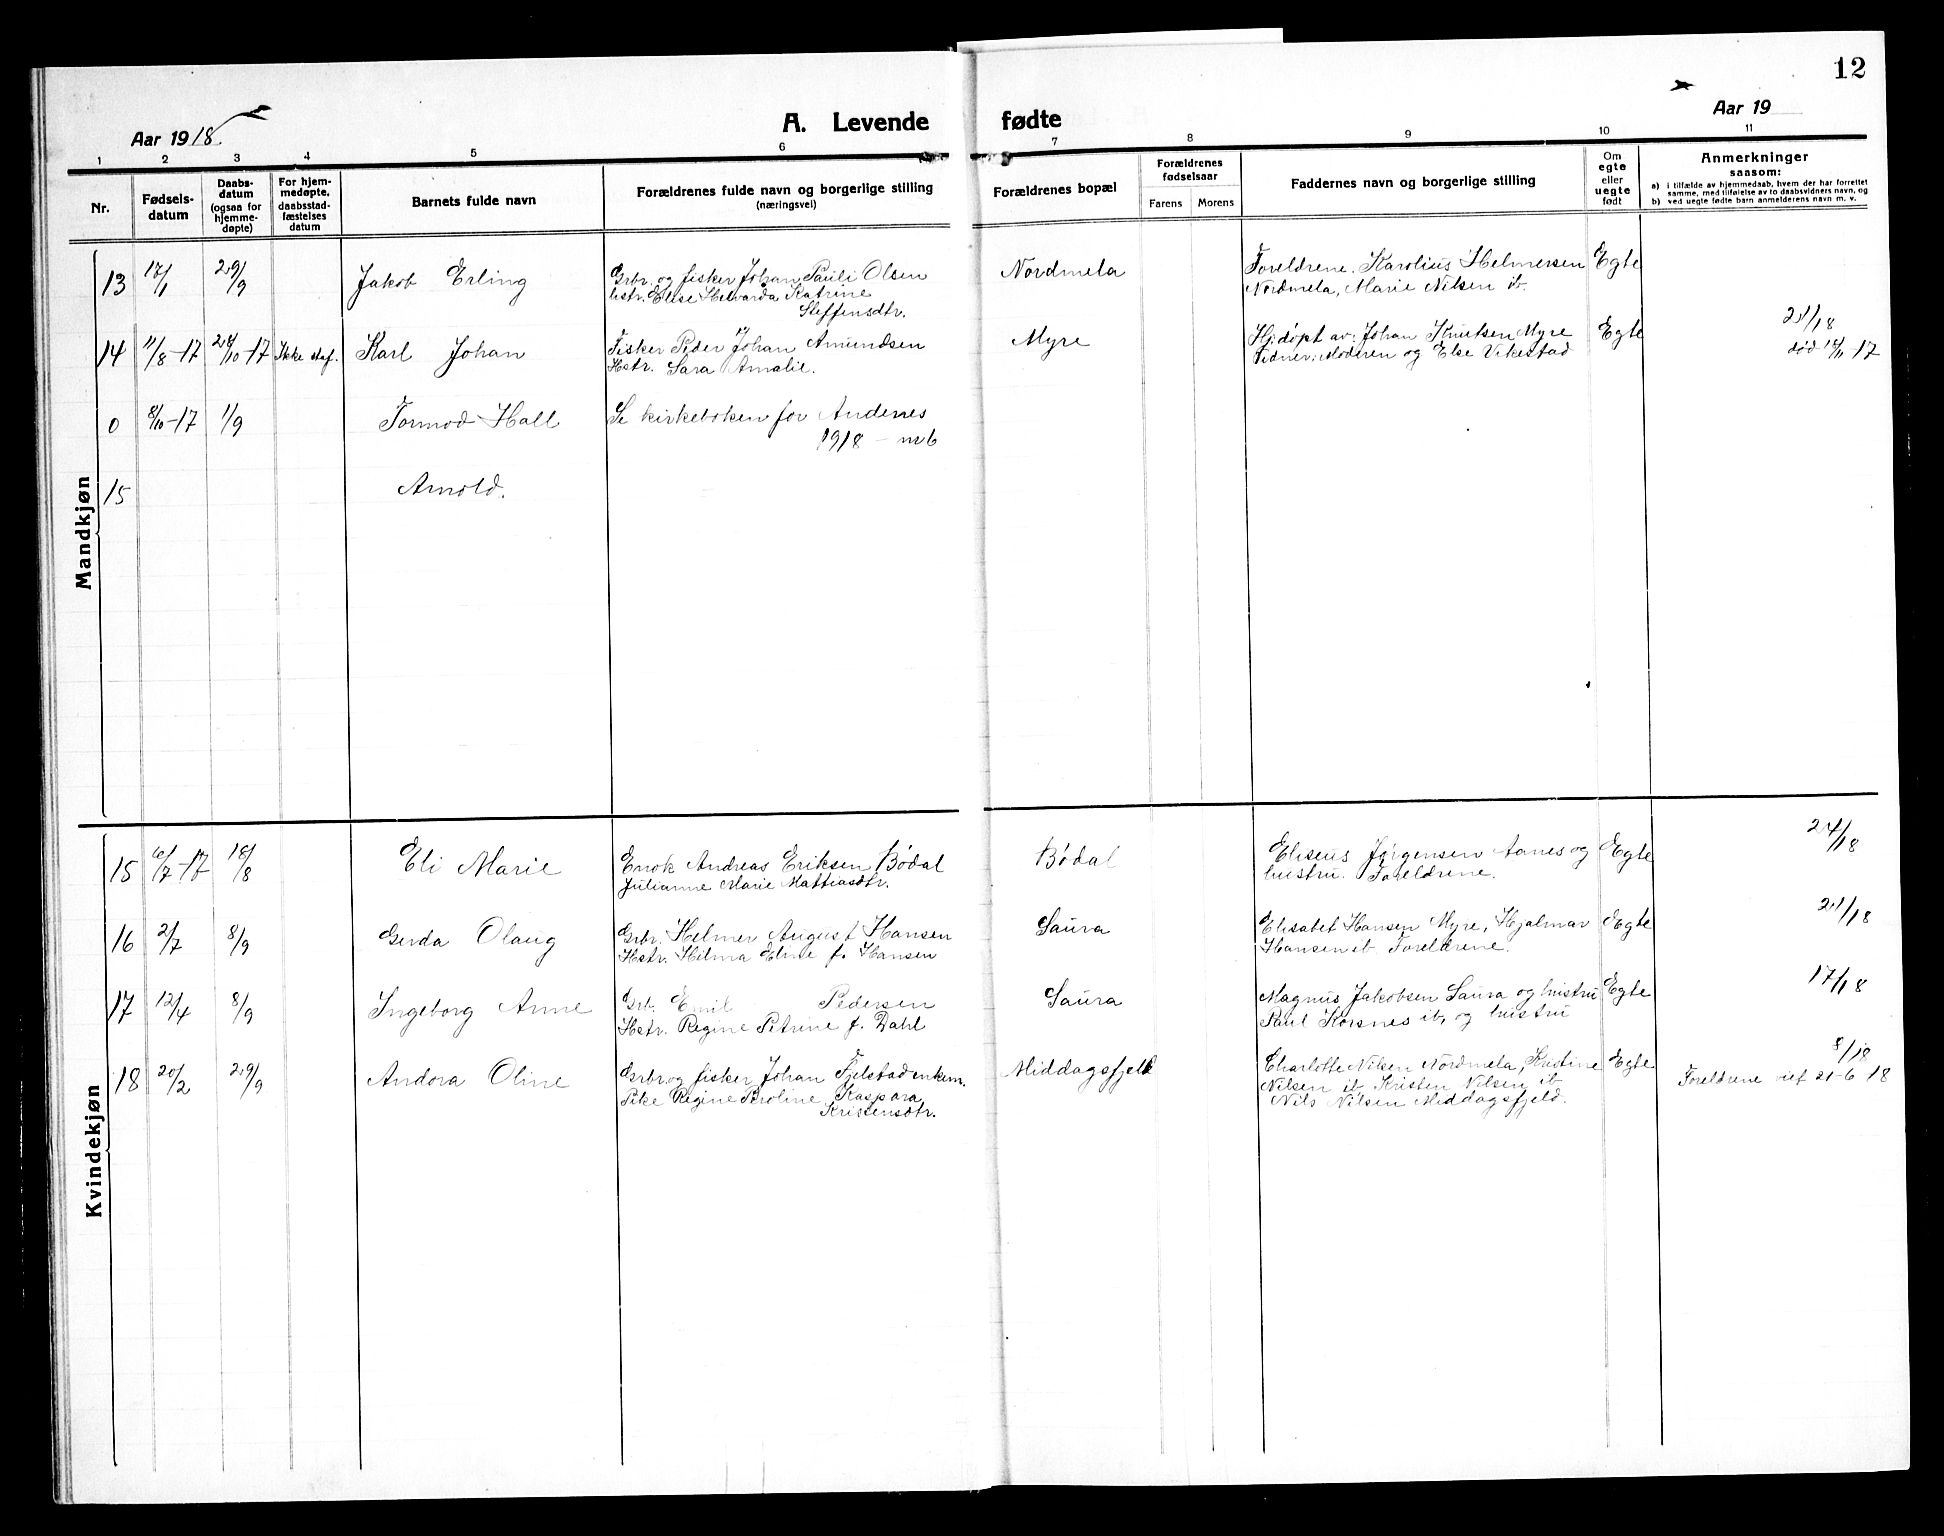 12
Aar 1918
A. Levende fødte
Aar 19
1 2 3 4 5 6 7 8 9 10 11
Nr.
Fødsels-
datum
Daabs-
datum
(ogsaa for
hjemme-
døpte)
For hjem-
medøpte,
daabsstad-
fæstelses
datum
Barnets fulde navn
Forældrenes fulde navn og borgerlige stilling
(næringsvei)
Forældrenes bopæl
Forældrenes
fødselsaar
Farens Morens
Faddernes navn og borgerlige stilling
Om
egte
eller
uegte
født
Anmerkninger
saasom:
a) i tilfælde av hjemmedaab, hvem der har forrettet
samme, med tilføielse av to daabsvidners navn, og
b) ved uegte fødte barn anmelderens navn m. v.
Mandkjøn
13 17/1 29/9 Jakob Erling
Grbr. og fisker Johan Pauli Olsen
hstr. Elise Helvarda Katrine
Steffensdtr.
Nordmela
Foreldrene. Karolius Helmersen
Nordmela, Marie Nilsen ib.
Egte
14 11/8-17 24/10-17 Ikke staf. Karl Johan
Fisker Peder Johan Amundsen
Hstr. Sara Amalie.
Myre
Hj.døpt av: Johan Knutsen Myre
Vidner: Moderen og Else Vikestad
Egte
21/18
død 14/11-17
0 8/10-17 1/9 Tormod Hall
Se kirkeboken for Andenes
1918 - nr 6
15 Arnold.
Kvindekjøn
15 6/7-17 18/8 Eli Marie
Enok Andreas Eriksen Bödal
Julianne Marie Mattiasdtr.
Bödal
Eliseus Jørgensen Aanes og
hustru. Foreldrene.
Egte
24/18
16 2/7 8/9 Gerda Olaug
Grbr. Helmer August Hansen
Hstr. Hilma Eline f. Hansen
Saura
Elisabet Hansen Myre, Hjalmar
Hansen ib. Foreldrene.
Egte
21/18
17 12/4 8/9 Ingeborg Anne
Grb. Emil Pedersen
Hstr. Regine Petrine f. Dahl
Saura
Magnus Jakobsen Saura og hustru
Paul Korsnes ib, og hustru
Egte
17/18
18 20/2 29/9 Andora Oline
Grbr og fisker Johan Fjelstadenkem.
Pike Regine Peroline Kaspara
Kristensdtr.
Middagsfjeld
Charlotte Nilsen Nordmela, Kristine
Nilsen ib. Kristen Nilsen ib.
Nils Nilsen Middagsfjeld.
Egte
8/18
Foreldrene viet 21-6 18